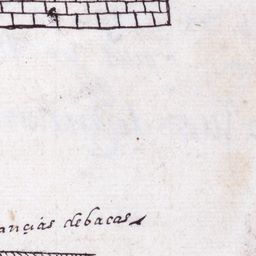 ançias debacas